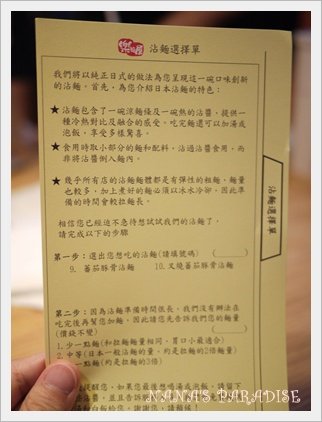 樂山屋 沾麵選擇單
我們將以純正日式的做法為您呈現這一碗口味創新
的沾麵，首先，為您介紹日本沾麵的特色：
★沾麵包含了一碗涼麵條及一碗熱的沾醬，提供一
種冷熱對比及融合的感受。吃完麵還可以加湯或
泡飯，享受多樣驚喜。
★食用時取小部分的麵和配料，沾過沾醬食用，而
非將沾醬倒入麵內。
★幾乎所有店的沾麵麵體都是有彈性的粗麵，麵量
也較多，加上煮好的麵必須以冰水冷卻，因此準
備的時間會較拉麵長。
相信您已經迫不急待想試試我們的沾麵了，
請完成以下的步驟
第一步：選出您想吃的沾麵(請填號碼) ( )
9. 蕃茄豚骨沾麵 10. 叉燒蕃茄豚骨沾麵
第二步：因為沾麵準備時間很長，我們沒有辦法在
吃完後再幫您加麵，因此請您先告訴我們您的麵量
(價錢不變) ( )
1. 少一點麵(和拉麵麵量相同，胃口小最適合)
2. 中等(日本一般沾麵的量，約是拉麵的2倍麵量)
3. 多一點麵(約是拉麵的3倍
提醒您，如果您最後想喝湯或泡飯，請留下
沾麵選擇單
NANA'S PARADISE